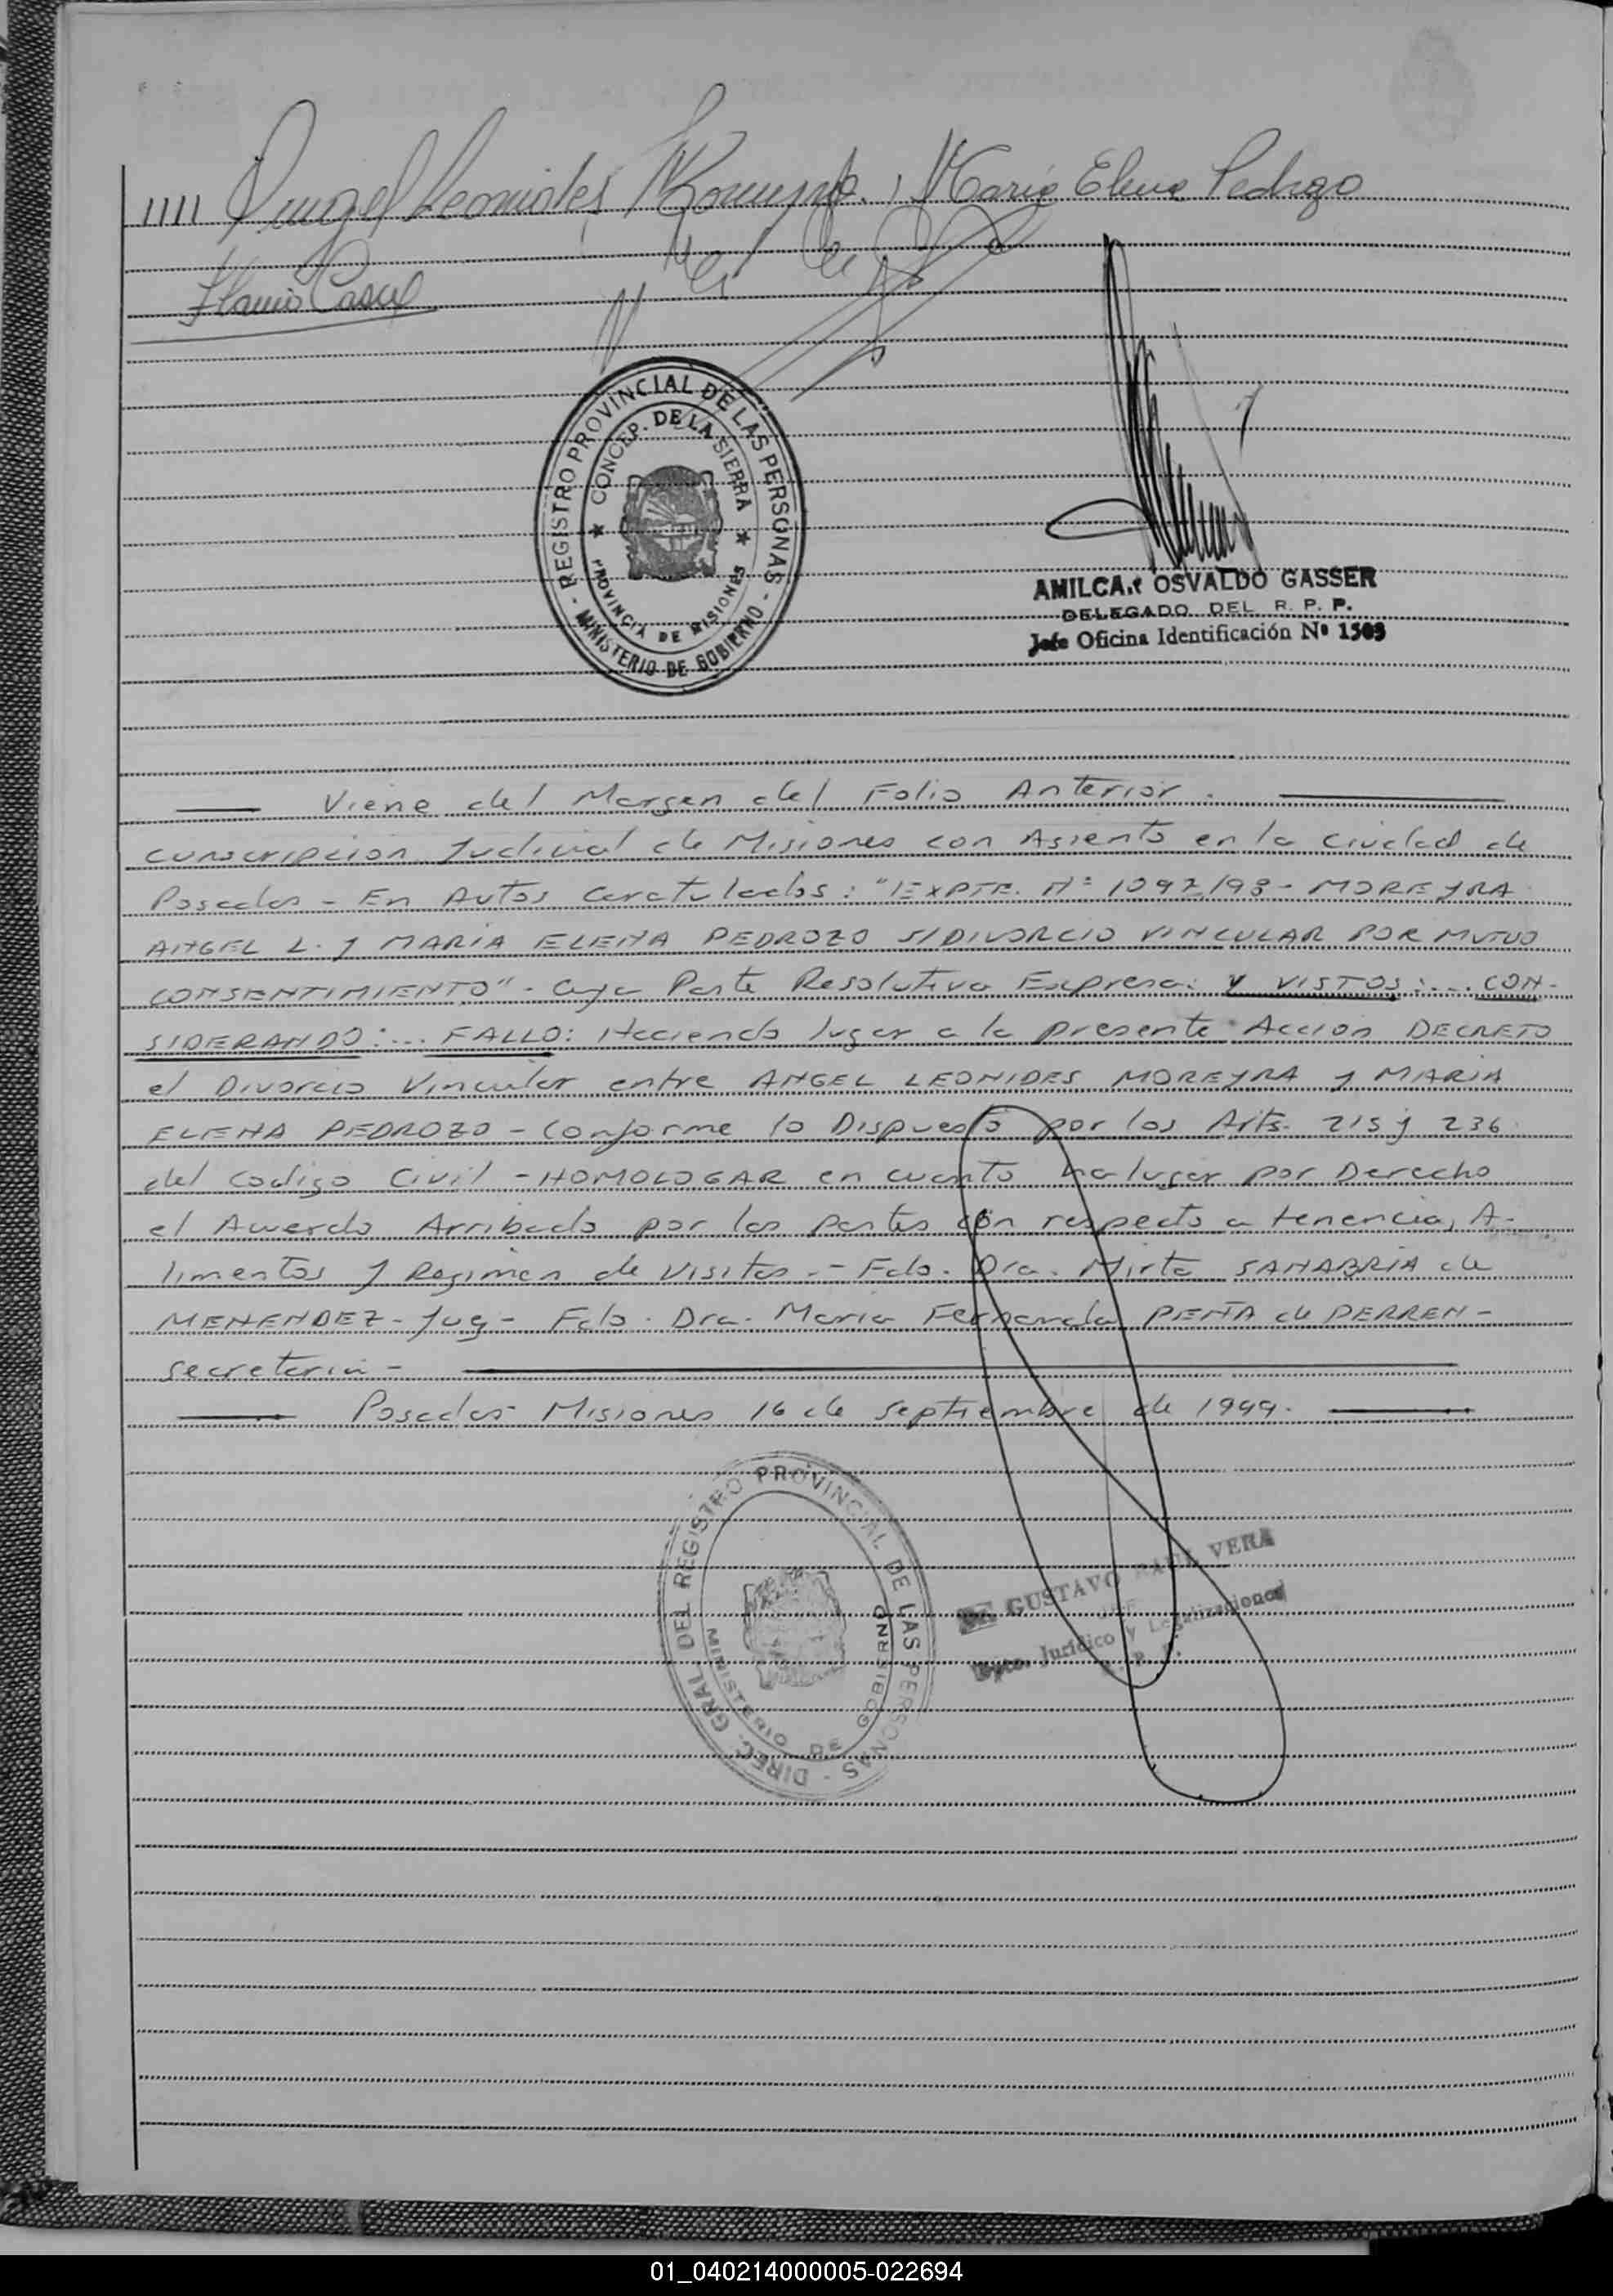 //// Angel Leonides Moreyra. María Elena Pedrozo
REGISTRO PROVINCIAL DE LAS PERSONAS - MINISTERIO DE GOBIERNO -
CONCEP. DE LA SIERRA ★ PROVINCIA DE MISIONES ★
AMILCAR OSVALDO GASSER
DELEGADO DEL R. P. P.
Jefe Oficina Identificación Nº 1503
Viene del Margen del Folio Anterior.
cunscripcion Judicial de Misiones con Asiento en la Ciudad de
Posadas - En Autos Caratulados: "EXPTE. Nº 1097/98 - MOREYRA
ANGEL L. y MARIA ELENA PEDROZO S/DIVORCIO VINCULAR POR MUTUO
CONSENTIMIENTO" - cuya Parte Resolutiva Expresa: Y VISTOS:... CON-
SIDERANDO:... FALLO: Haciendo lugar a la presente Accion DECRETO
el Divorcio Vincular entre ANGEL LEONIDES MOREYRA y MARIA
ELENA PEDROZO - Conforme lo Dispuesto por los Arts. 215 y 236
del Codigo Civil - HOMOLOGAR en cuanto ha lugar por Derecho
el Acuerdo Arribado por las partes con respecto a tenencia, A-
limentos y Regimen de Visitas. - Fdo. Dra. Mirta SANABRIA de
MENENDEZ - Juez - Fdo. Dra. Maria Fernanda PEÑA de PERREN -
secretaria -
Posadas Misiones 16 de Septiembre de 1999.
DIREC. GRAL. DEL REGISTRO PROVINCIAL DE LAS PERSONAS -
MINISTERIO DE GOBIERNO
GUSTAVO RAUL VERA
JEFE
Dpto. Jurídico y Legalizaciones
R. P. P.
01_040214000005-022694